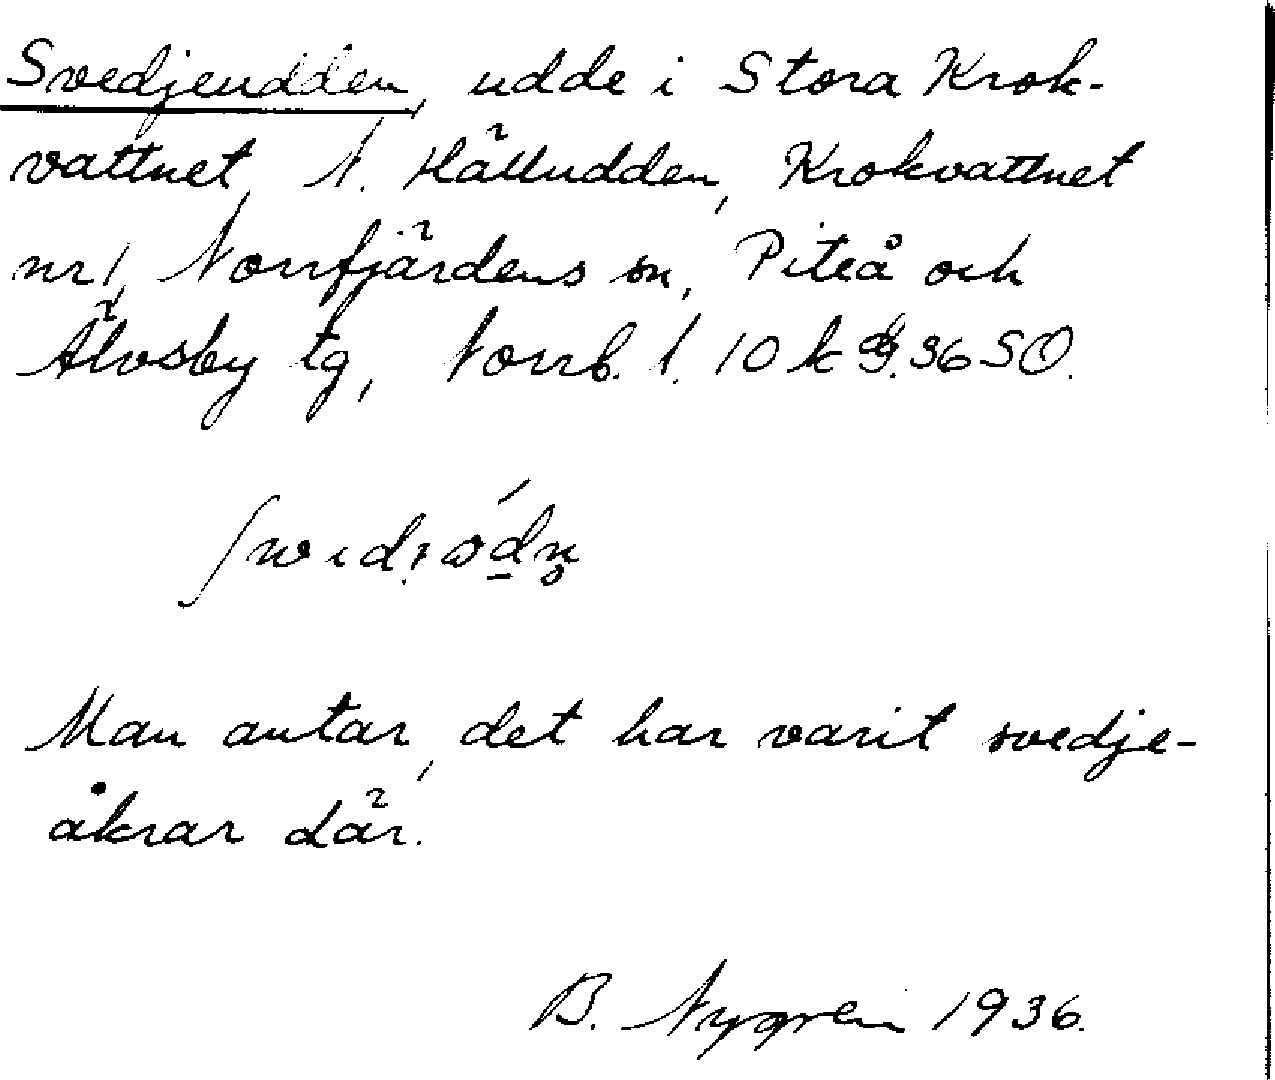 Svedjeudden, udde i Stora Krok-
vattnet, N. Hälludden, Krokvattnet
nr 1, Norrfjärdens sn, Piteå och
Älvsby tg, Norrb. l. 10 k 36 SO.
Man antar, det har varit svedje-
åkrar där.
B. Nygren 1936.